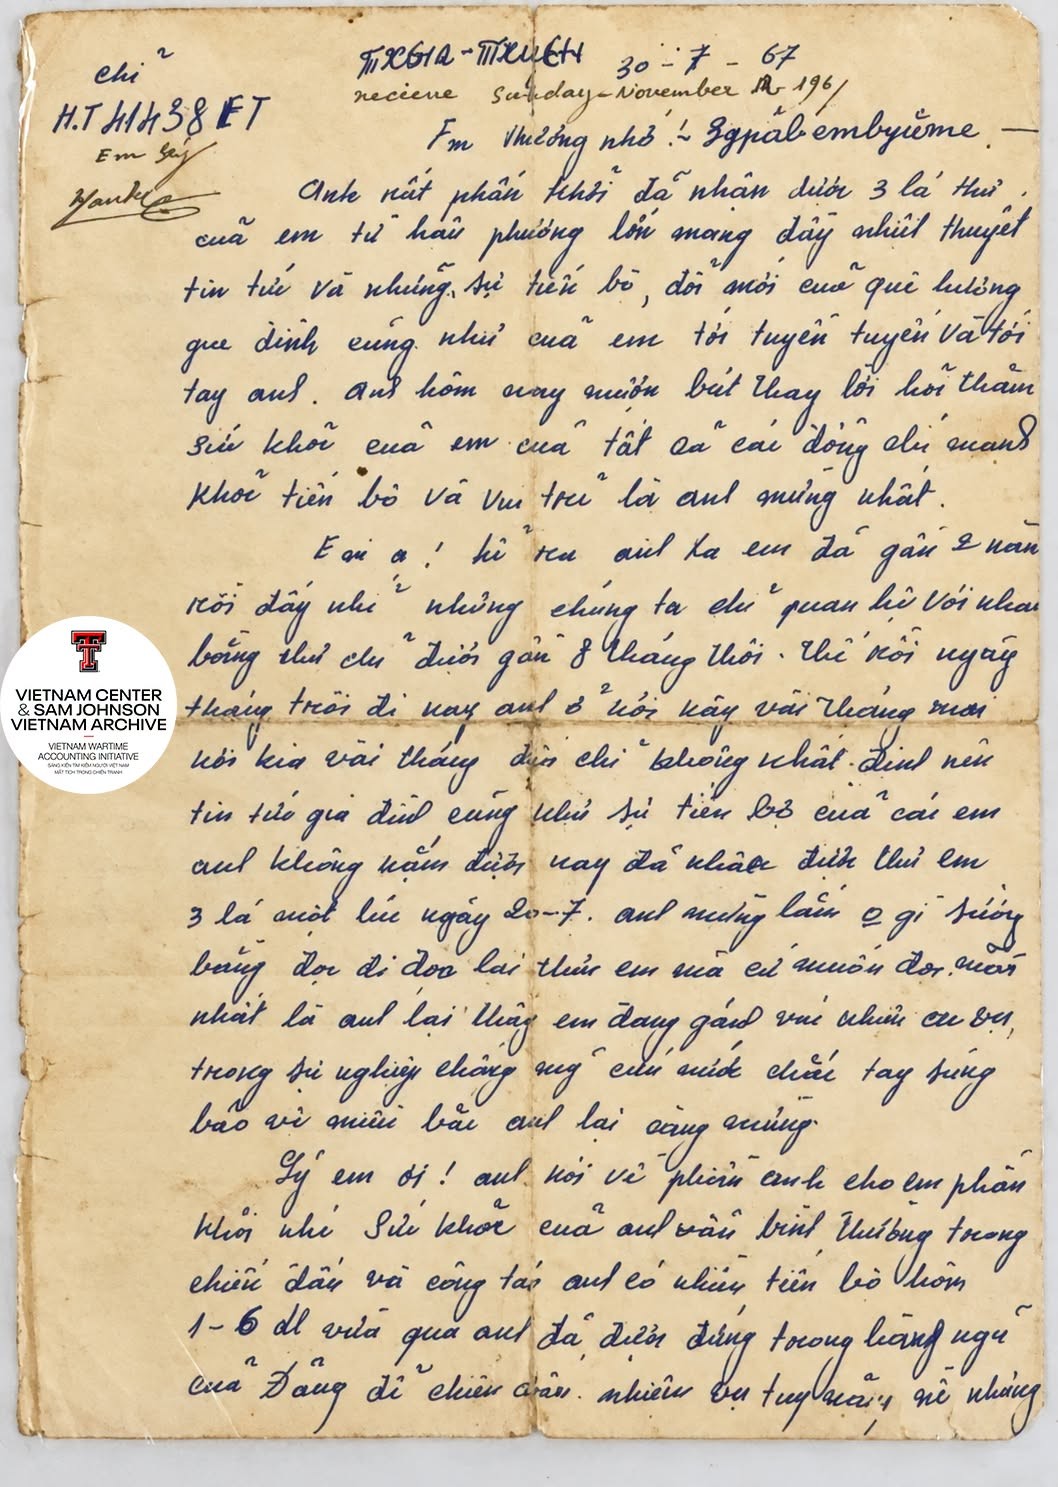 chỉ
H.T 41438 ET
Em Lý
30 - 7 - 67
recieve Sunday - November 12 196/
Em thương nhớ !~
Anh rất phấn khởi đã nhận được 3 lá thư
của em từ hậu phương lớn mang đầy nhiệt thuyết
tin tức và những sự tiến bộ, đổi mới của quê hương
gia đình cũng như của em tới tuyền tuyến và tới
tay anh. Anh hôm nay mượn bút thay lời hỏi thăm
sức khoẻ của em của tất cả các đồng chí mạnh
khoẻ tiến bộ và vui trẻ là anh mừng nhất.
Em ạ ! kể ra anh xa em đã gần 2 năm
rồi đấy nhỉ nhưng chúng ta chỉ quan hệ với nhau
bằng thư chỉ được gần 8 tháng thôi. Thế rồi ngày
tháng trôi đi nay anh ở nơi này vài tháng mai
nơi kia vài tháng địa chỉ không nhất định nên
tin tức gia đình cũng như sự tiến bộ của các em
anh không nắm được nay đã nhận được thư em
3 lá một lúc ngày 20-7. anh mừng lắm o gì sướng
bằng đọc đi đọc lại thư em mà cứ muốn đọc mãi
nhất là anh lại thấy em đang gánh vác nhiều
trong sự nghiệp chống mỹ cứu nước chắc tay súng
bảo vệ miền bắc anh lại càng mừng.
Lý em ơi ! anh nói về phần anh cho em phấn
khởi nhé Sức khoẻ của anh vẫn bình thường trong
chiến đấu và công tác anh có nhiều tiến bộ hôm
1-6 dl vừa qua anh đã được đứng trong hàng ngũ
của Đảng để chiến đấu. nhiệm vụ tuy nặng nề nhưng
VIETNAM CENTER
& SAM JOHNSON
VIETNAM ARCHIVE
VIETNAM WARTIME
ACCOUNTING INITIATIVE
SÁNG KIẾN TÌM KIẾM NGƯỜI VIỆT NAM
MẤT TÍCH TRONG CHIẾN TRANH